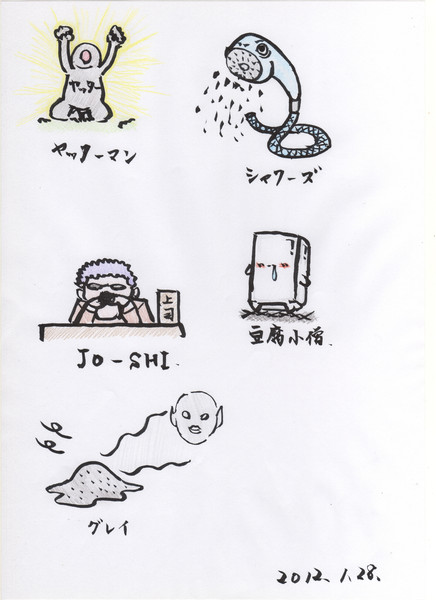 ヤッター
ヤッターマン
シャワーズ
上司
JO-SHI.
豆腐小僧.
グレイ
2012.1.28.